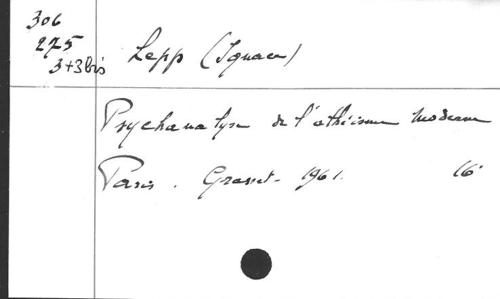 306
275
3+3bis
Lepp (Ignace)
Psychanalyse de l'athéisme moderne
Paris. Grasset. 1961. 16°